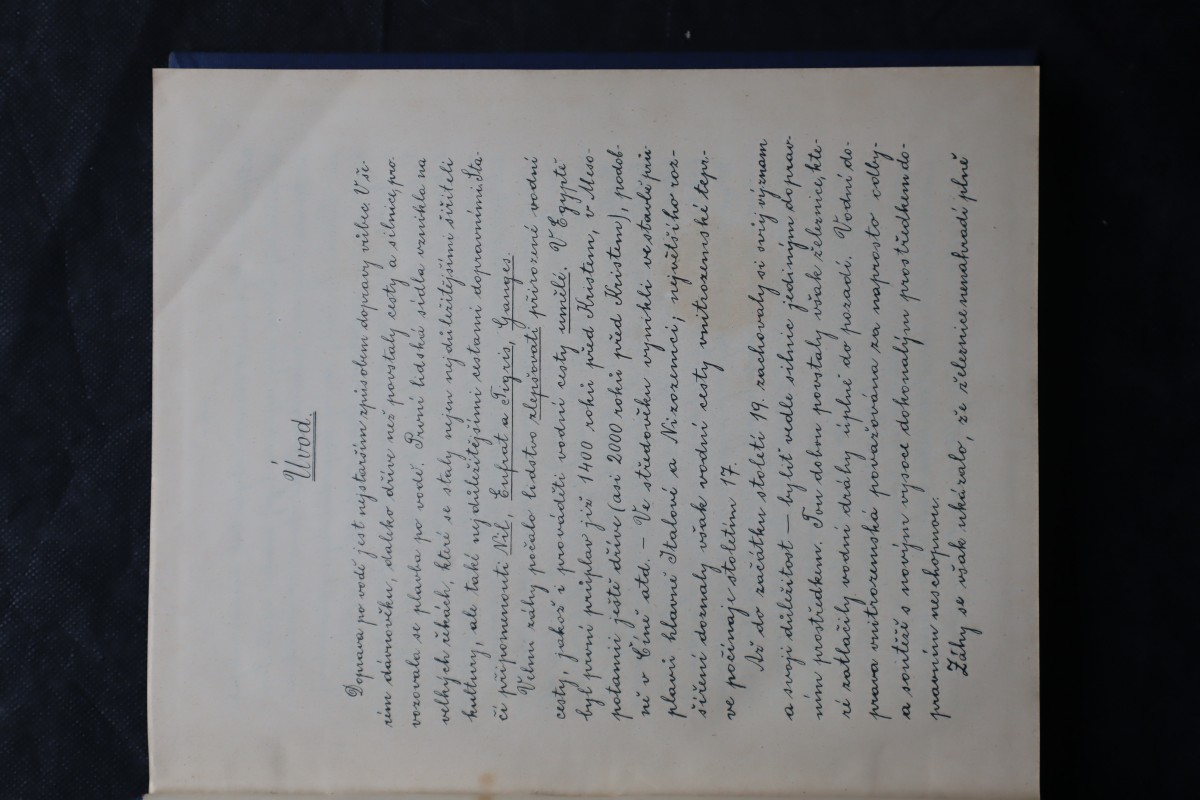 Úvod.
Doprava po vodě jest nejstarším způsobem dopravy vůbec. V še-
rém dávnověku, daleko dříve než povstaly cesty a silnice, pro-
vozovala se plavba po vodě. První lidská sídla vznikla na
velkých řekách, které se staly nejen nejdůležitějšími šiřiteli
kultury, ale také nejdůležitějšími cestami dopravními. Sta-
čí připomenouti Nil, Eufrat a Tigris, Ganges.
Velmi záhy počalo lidstvo zlepšovati přirozené vodní
cesty, jakož i prováděti vodní cesty umělé. V Egyptě
byl první průplav již 1400 roků před Kristem, v Meso-
potamii ještě dříve (asi 2000 roků před Kristem), podob-
ně v Číně atd. — Ve středověku vynikli ve stavbě prů-
plavů hlavně Italové a Nizozemci; největšího roz-
šíření doznaly však vodní cesty vnitrozemské tepr-
ve počínaje stoletím 17.
Až do začátku století 19. zachovaly si svůj význam
a svoji důležitost — bylyť vedle silnic jediným doprav-
ním prostředkem. Tou dobou povstaly však železnice, kte-
ré zatlačily vodní dráhy úplně do pozadí. Vodní do-
prava vnitrozemská považována za naprosto odby-
a soutěží s novým vysoce dokonalým prostředkem do-
pravním neschopnou.
Záhy se však ukázalo, že železnice nenahradí plně